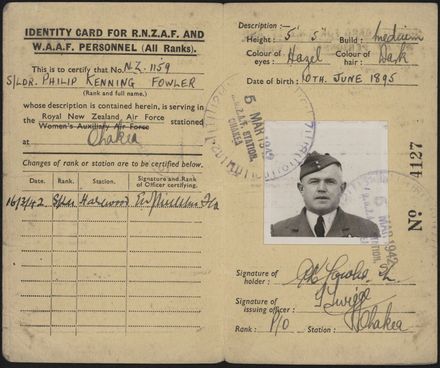 IDENTITY CARD FOR R.N.Z.A.F. AND
W.A.A.F. PERSONNEL (All Ranks).
This is to certify that No. N.Z. 1159
S/LDR. PHILIP KENNING FOWLER
(Rank and full name.)
whose description is contained herein, is serving in
the Royal New Zealand Air Force stationed
Women's Auxiliary Air Force
at Ohakea
Changes of rank or station are to be certified below.
Date. Rank. Station. Signature and Rank of Officer certifying.
16/3/42 Harewood
Description:—
Height: 5' 5 Build: medium
Colour of eyes: Hazel Colour of hair: Dark
Date of birth: 10TH. JUNE 1895
5 MAR 1942
R.N.Z.A.F. STATION
OHAKEA
No 4127
5 MAR 1942
Signature of holder:
Signature of issuing officer:
Rank: P/O Station: Ohakea